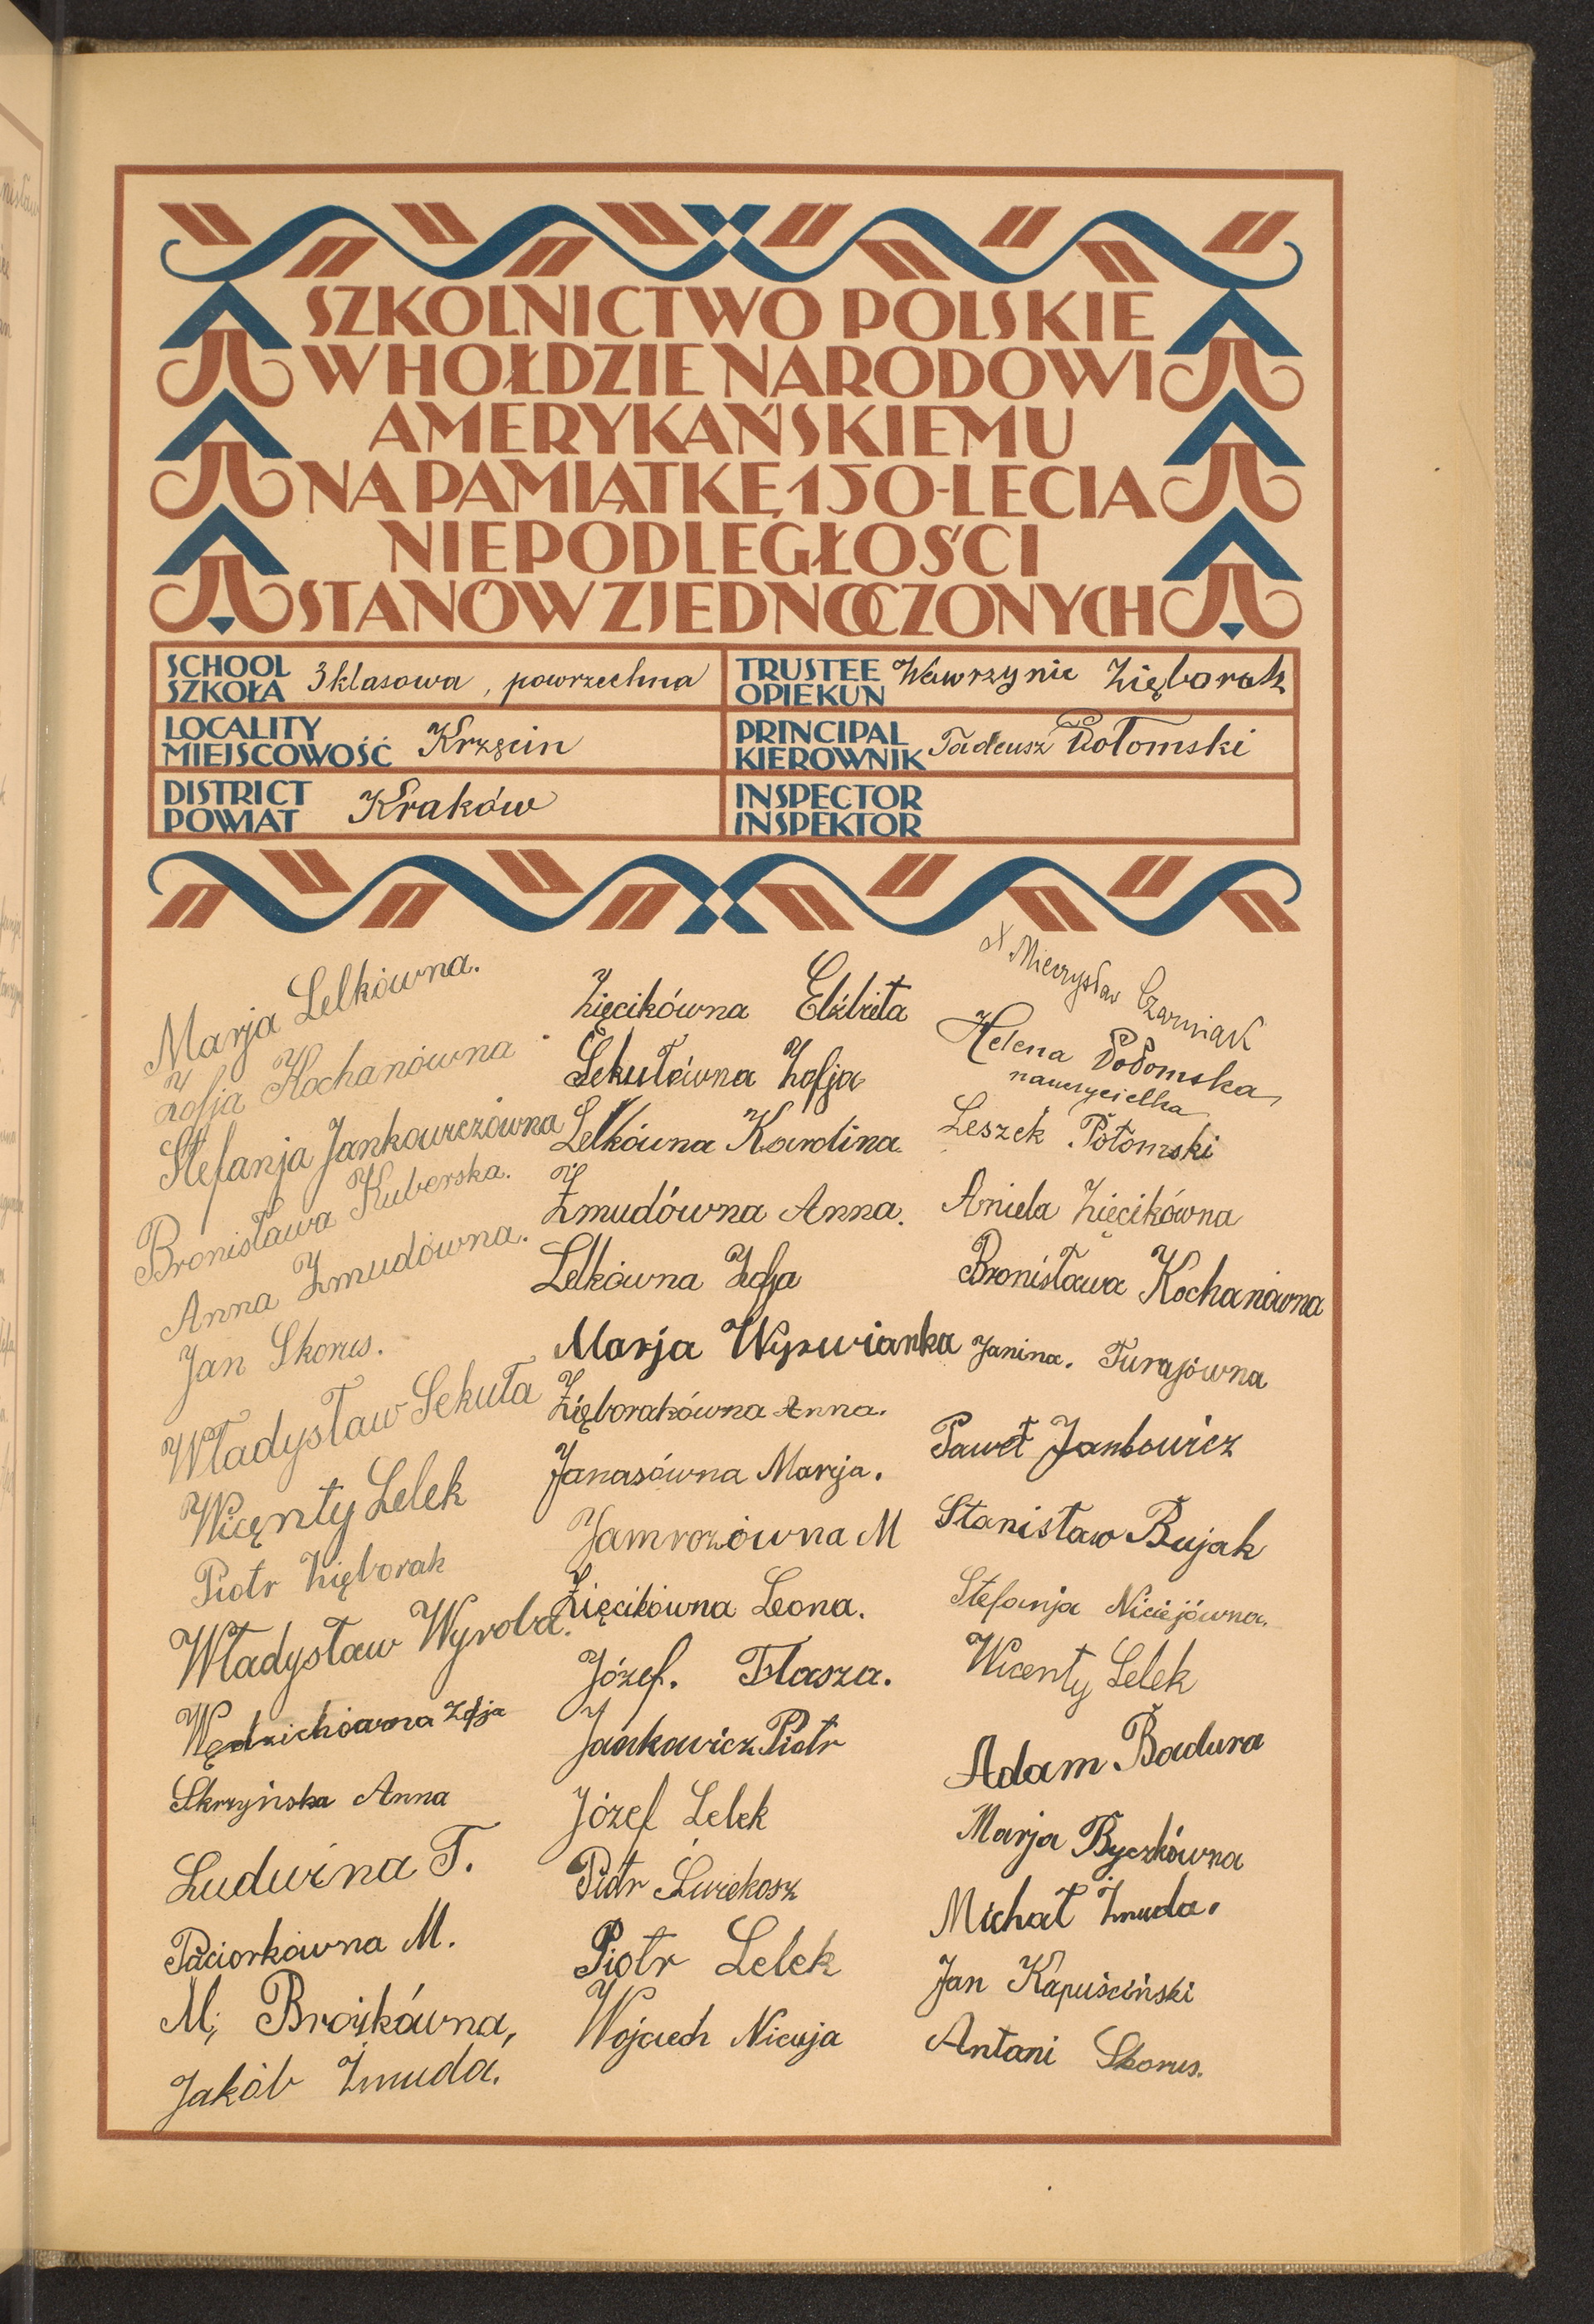 SZKOLNICTWO POLSKIE
W HOŁDZIE NARODOWI
AMERYKAŃSKIEMU
NA PAMIĄTKĘ 150-LECIA
NIEPODLEGŁOŚCI
STANÓW ZJEDNOCZONYCH
SCHOOL
SZKOŁA 3 klasowa, powrzechna
TRUSTEE
OPIEKUN Wawrzyniec Zięborak
LOCALITY
MIEJSCOWOŚĆ Krzęcin
PRINCIPAL
KIEROWNIK Tadeusz Połomski
DISTRICT
POWIAT Kraków
INSPECTOR
INSPEKTOR
Marja Lelkówna.
Zofja Kochanówna
Stefanja Jankowiczówna
Bronisława Kuberska.
Anna Żmudówna.
Jan Skorus.
Władysław Sekuła
Wicęnty Lelek
Piotr Zięborak
Władysław Wyroba.
Wędzichówna Zofja
Skrzyńska Anna
Ludwina T.
Paciorkówna M.
M. Brożkówna,
Jakób Żmuda.
Zięcikówna Elżbieta
Sekułówna Zofja
Lelkówna Karolina
Żmudówna Anna.
Lelkówna Zofja
Marja Wyrwianka
Zięborakówna Anna.
Janasówna Marja.
Jamrozówna M
Zięcikówna Leona.
Józef. Flasza.
Jankowicz Piotr
Józef Lelek
Piotr Świekosz
Piotr Lelek
Wojciech Nicieja
X Mieczysław Czarniak
Helena Połomska,
nauczycielka
Leszek Połomski
Aniela Zięcikówna
Bronisława Kochanówna
Janina. Turajówna
Paweł Jankowicz
Stanisław Bujak
Stefanja Niciejówna.
Wicenty Lelek
Adam Badura
Marja Byczkówna
Michał Żmuda.
Jan Kapuściński
Antoni Skorus.